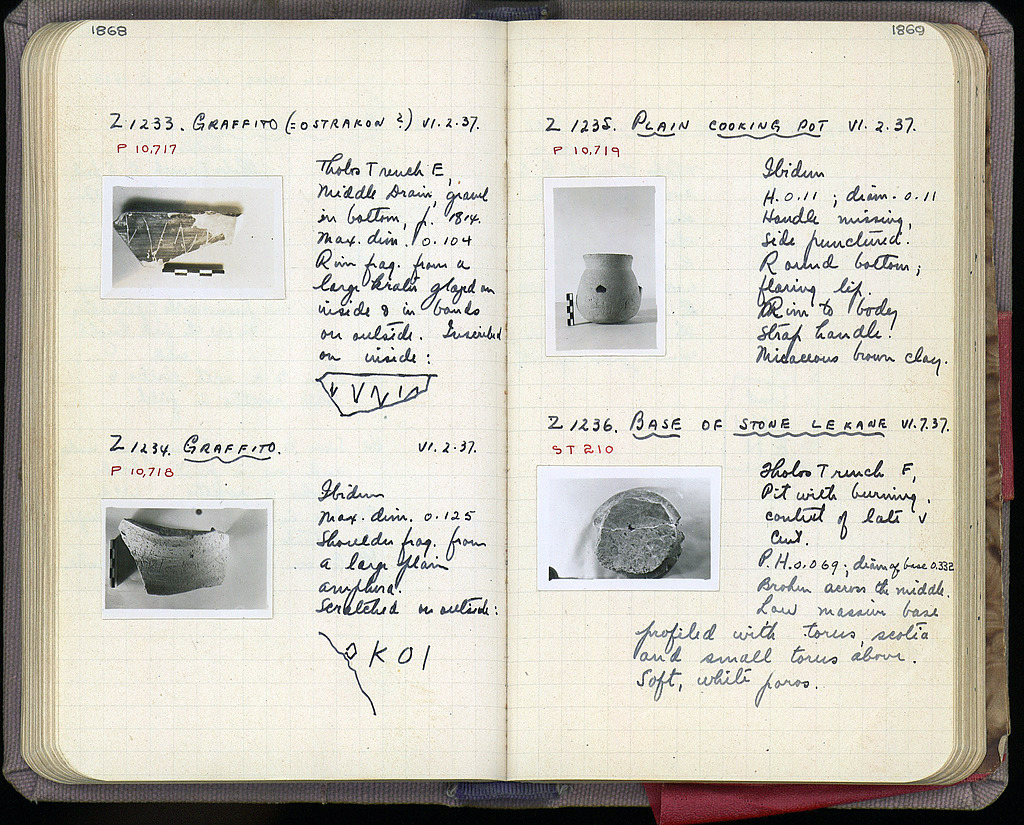 1868
Z 1233. GRAFFITO (=OSTRAKON ?) VI.2.37.
P 10,717
Tholos Trench E,
Middle Drain, gravel
in bottom, p. 1814.
Max. dim. 0.104
Rim frag. from a
large krater glazed on
inside & in bands
on outside. Inscribed
on inside:
Z 1234. GRAFFITO. VI.2.37.
P 10,718
Ibidum
Max. dim. 0.125
Shoulder frag. from
a large plain
amphora.
Scratched on outside:
KOI
1869
Z 1235. PLAIN COOKING POT VI.2.37.
P 10,719
Ibidum
H. 0.11 ; diam. 0.11
Handle missing,
side punctured.
Round bottom;
flaring lip.
Rim to body
strap handle.
Micaceous brown clay.
Z 1236. BASE OF STONE LEKANE VI.7.37.
ST 210
Tholos Trench F,
Pit with burning.
context of late V
Cent.
P.H. 0.069; diam of base 0.332
Broken across the middle.
Low massive base
profiled with torus, scotia
and small torus above.
Soft, white poros.